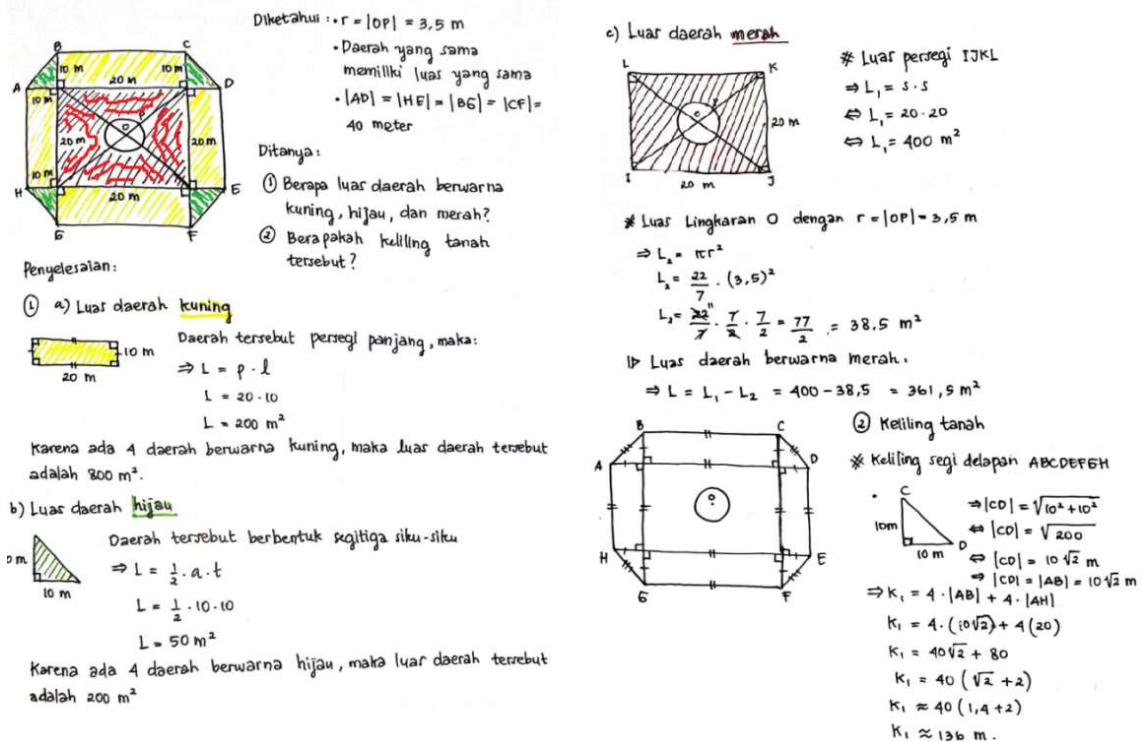 Diketahui : • r = |OP| = 3,5 m
• Daerah yang sama
memiliki luas yang sama
• |AD| = |HE| = |BG| = |CF| =
40 meter
Ditanya :
① Berapa luas daerah berwarna
kuning, hijau, dan merah?
② Berapakah keliling tanah
tersebut?
B
C
10 m
10 m
20 m
A
D
10 m
P
O
20 m
20 m
10 m
H
E
20 m
G
F
Penyelesaian :
① a) Luas daerah kuning
10 m
20 m
Daerah tersebut persegi panjang, maka :
⇒ L = p . l
L = 20 . 10
L = 200 m²
Karena ada 4 daerah berwarna kuning, maka luas daerah tersebut
adalah 800 m².
b) Luas daerah hijau
m
10 m
Daerah tersebut berbentuk segitiga siku-siku
⇒ L = 1/2 . a . t
L = 1/2 . 10 . 10
L = 50 m²
Karena ada 4 daerah berwarna hijau, maka luas daerah tersebut
adalah 200 m²
c) Luas daerah merah
L
K
O
20 m
I
J
20 m
* Luas persegi IJKL
⇒ L₁ = s . s
⇔ L₁ = 20 . 20
⇔ L₁ = 400 m²
* Luas Lingkaran O dengan r = |OP| = 3,5 m
⇒ L₂ = πr²
L₂ = 22/7 . (3,5)²
L₂ = 22/7 . 7/2 . 7/2 = 77/2 = 38,5 m²
⇒ Luas daerah berwarna merah.
⇒ L = L₁ - L₂ = 400 - 38,5 = 361,5 m²
B
C
A
D
O
H
E
G
F
② Keliling tanah
* Keliling segi delapan ABCDEFGH
C
10m
10 m
D
⇒ |CD| = √10² + 10²
⇔ |CD| = √200
⇔ |CD| = 10√2 m
⇒ |CD| = |AB| = 10√2 m
⇒ K₁ = 4 . |AB| + 4 . |AH|
K₁ = 4 . (10√2) + 4 (20)
K₁ = 40√2 + 80
K₁ = 40 (√2 + 2)
K₁ ≈ 40 (1,4 + 2)
K₁ ≈ 136 m.